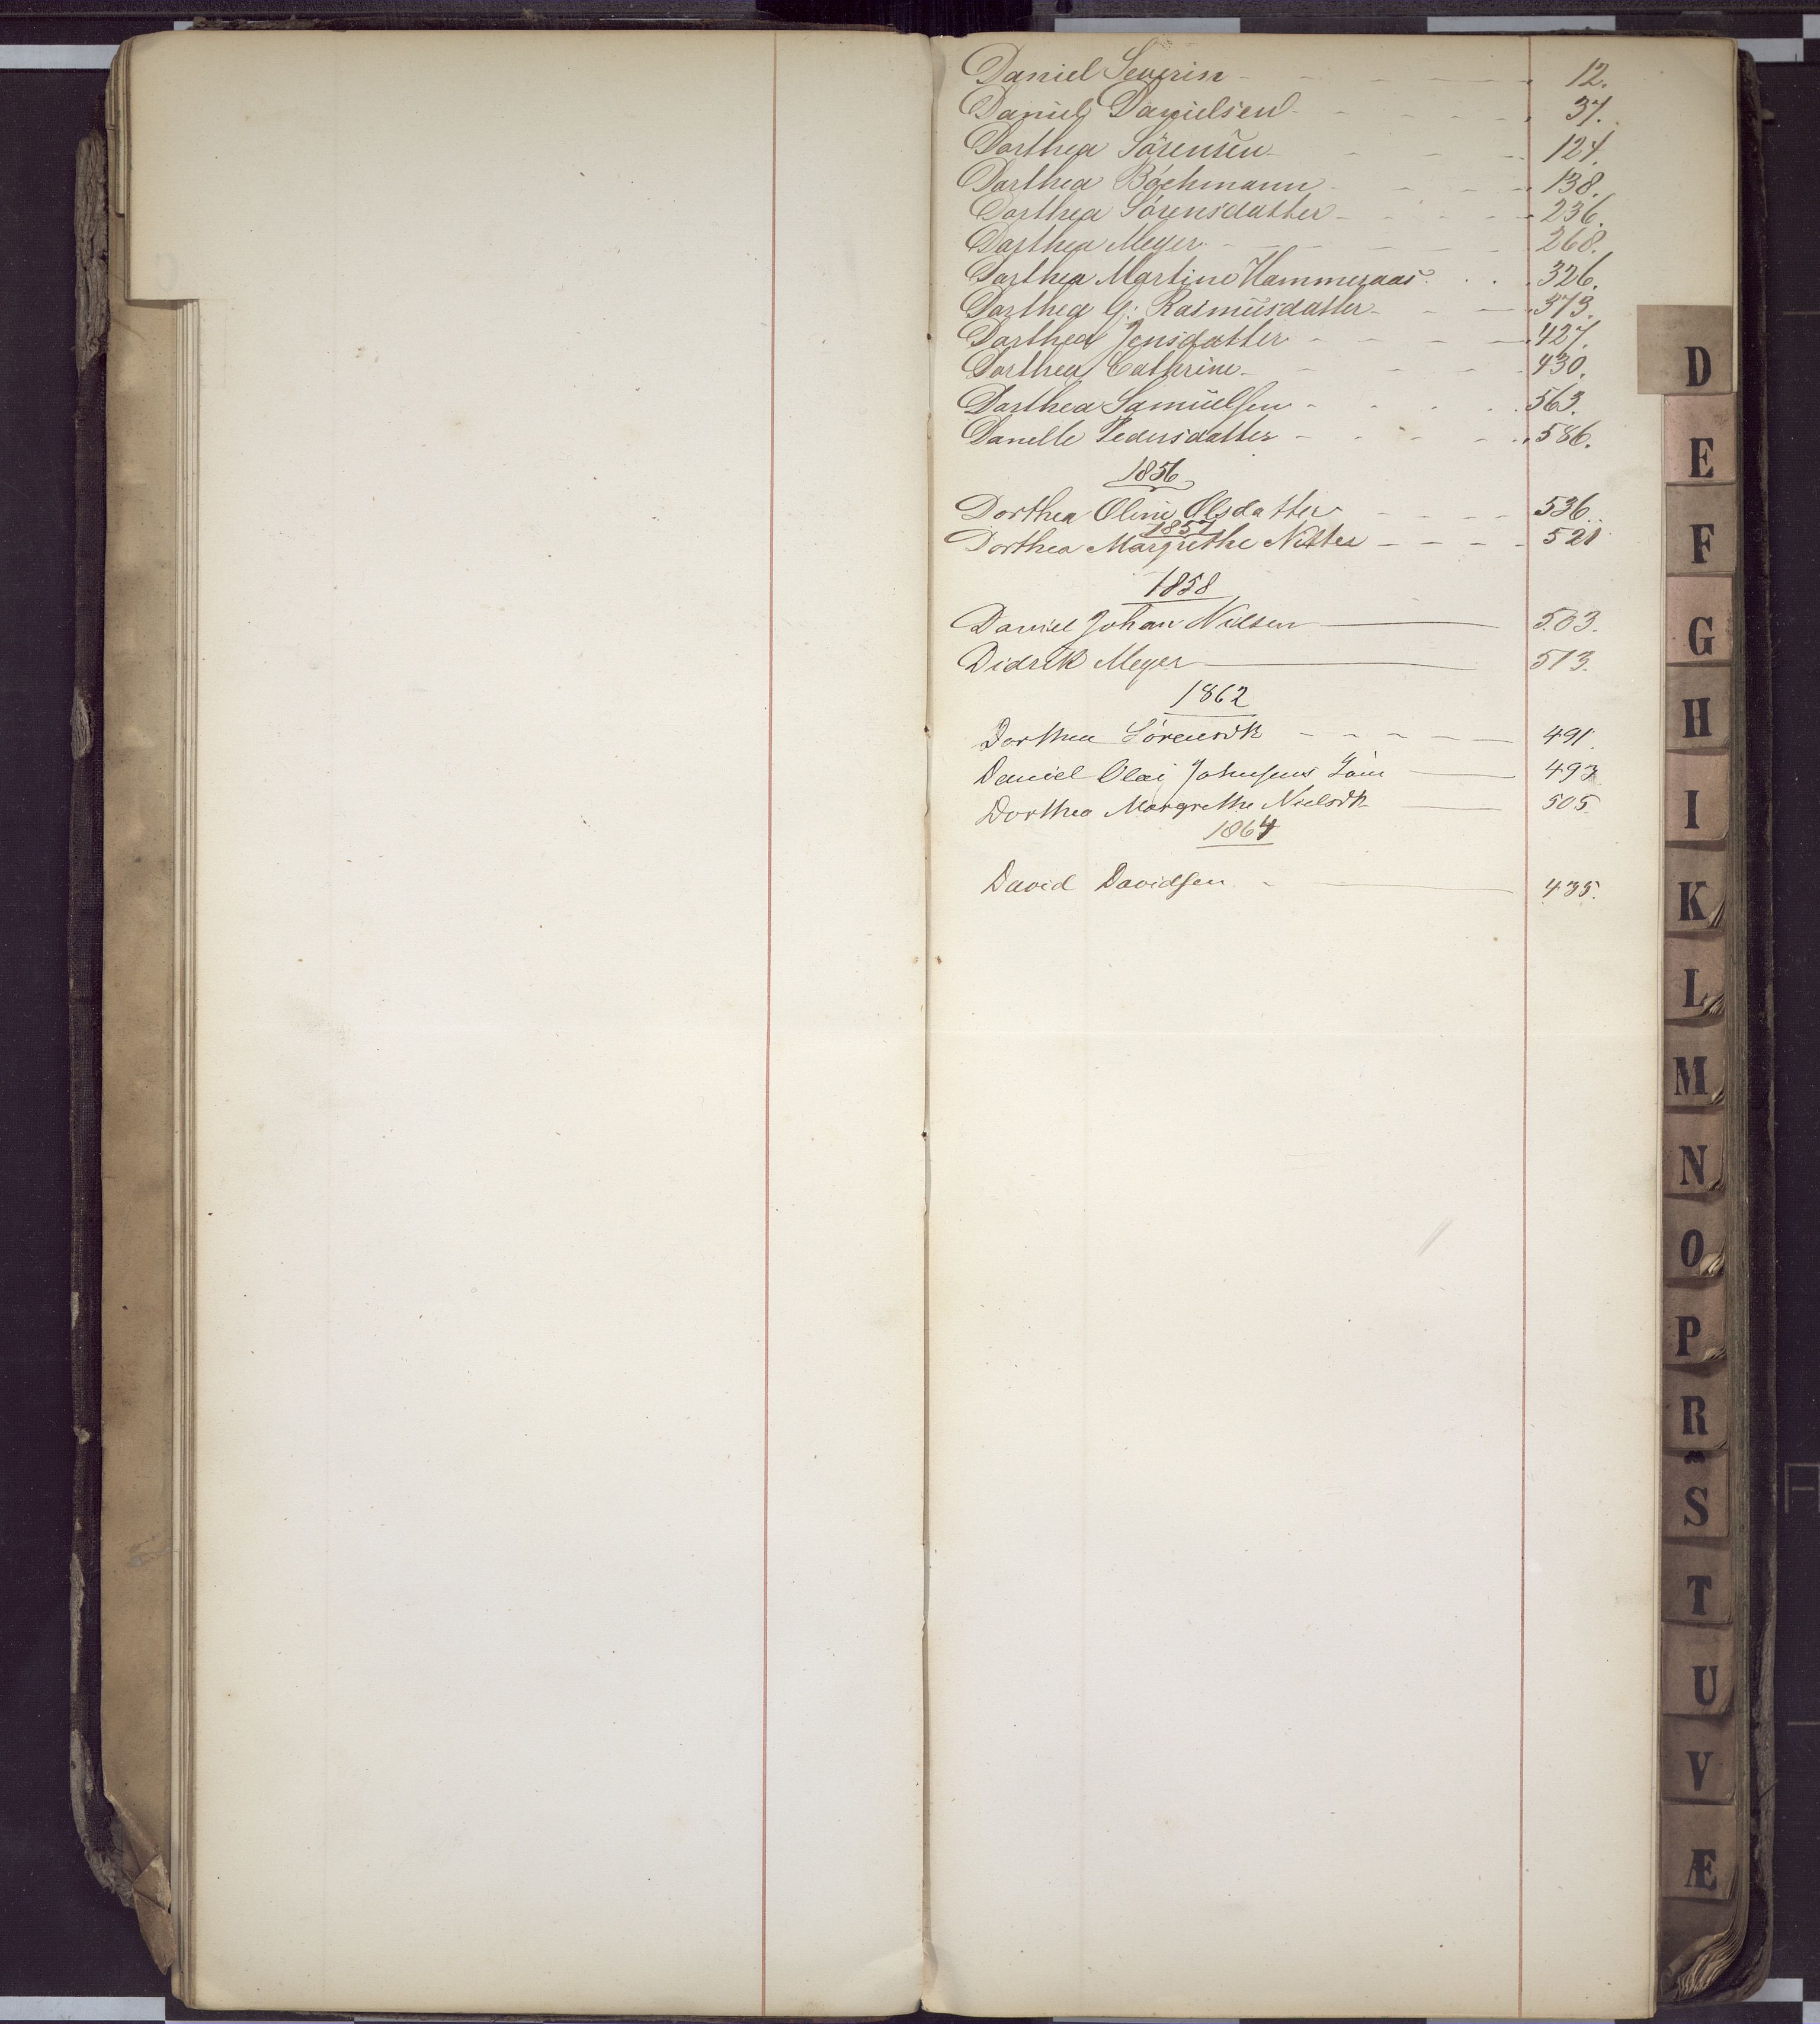 Daniel Severin - - - - - 12.
Daniel Danielsen - - - - - 37.
Dorthea Sörensen - - - 124.
Dorthea Bochmann - - - - 138.
Dorthea Sörensdatter - - - - 236.
Dorthea Meyer - - - - - - 268.
Dorthea Martine Hammeraas . . . 326.
Dorthea G: Rasmusdatter - - - 373.
Dorthea Jensdatter - - - - - 427.
Dorthea Cathrine - - - - - 430.
Dorthea Samuelsen - - - - 563.
Danelle Pedersdatter - - - - 586.
1856
Dorthea Oline Olsdatter - - - - 536.
1857
Dorthea Margrethe - - - - 521
1858
Daniel Johan Nilsen — 503.
Didrik Meyer — 513.
1862
Dorthea Sörensdtr - - - - - 491.
Daniel Olai Johnsens — 493
Dorthea Margrethe Nielsdtr — 505
1864
David Davidsen - — 435.
D
E
F
G
H
I
K
L
M
N
O
P
R
S
T
U
V
Æ